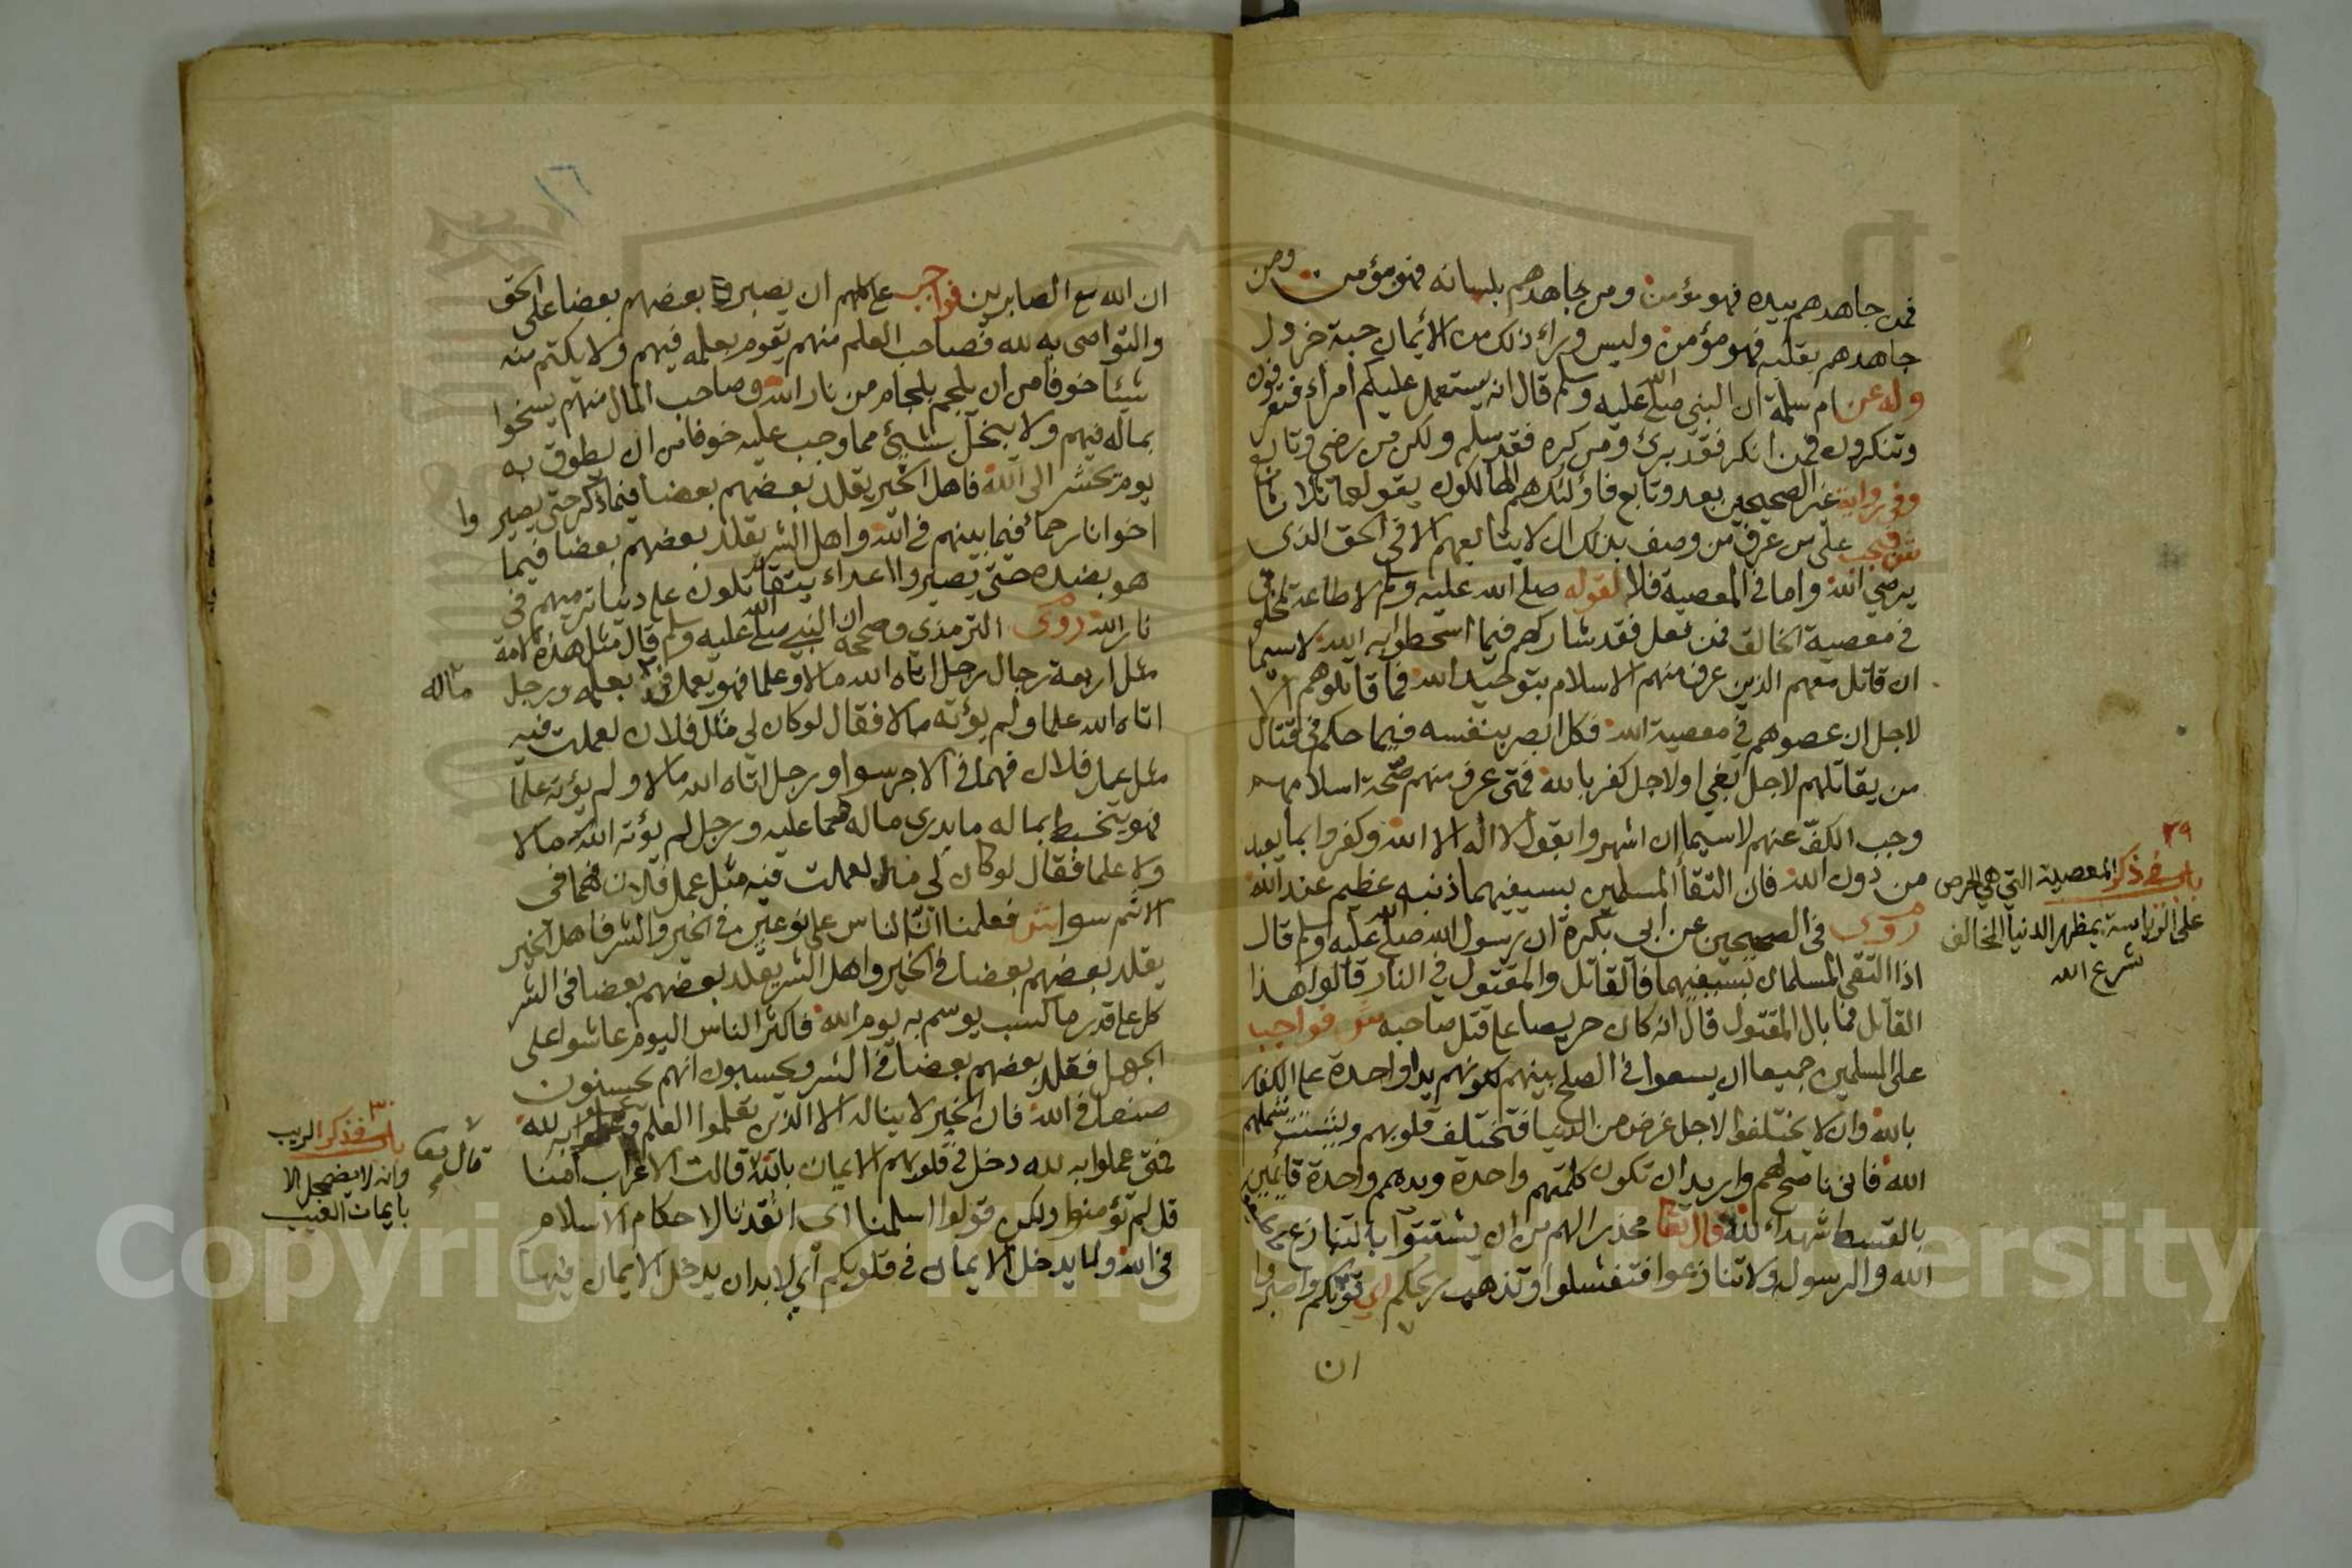 فمن جاهدهم بيده فهو مؤمن ومن جاهدهم بلسانه فهو مؤمن ومن
جاهدهم بقلبه فهو مؤمن وليس وراء ذلك من الايمان حبة خردل
وله عن ام سلمة ان النبي صلى الله عليه وسلم قال انه يستعمل عليكم امراء فتعرفون
وتنكرون فمن انكر فقد برئ ومن كره فقد سلم ولكن من رضي وتابع
وفي رواية غير الصحيحين بعد وتابع فاولئك هم الهالكون يقولها ثلاثا
ش فيجب على من عرف من وصف بذلك ان لا يتابعهم الا في الحق الذي
يرضي الله واما في المعصية فلا لقوله صلى الله عليه وسلم لا طاعة لمخلوق
في معصية الخالق فمن فعل فقد شاركهم فيما اسخطوا به الله لا سيما
ان قاتل معهم الذين عرف منهم الاسلام بتوحيد الله فما قاتلوهم الا
لاجل ان عصوهم في معصية الله فكل ابصر بنفسه فيما حكم في قتال
من يقاتلهم لاجل بغي او لاجل كفر بالله فمتى عرف منهم صحة اسلامهم
وجب الكف عنهم لا سيما ان اشهروا بقول لا اله الا الله وكفروا بما يعبد
من دون الله فان التقا المسلمين بسيفيهما ذنبه عظيم عند الله
روى في الصحيحين عن ابي بكرة ان رسول الله صلى الله عليه وسلم قال
اذا التقى المسلمان بسيفيهما فالقاتل والمقتول في النار قالوا هذا
القاتل فما بال المقتول قال انه كان حريصا على قتل صاحبه ش فواجب
على المسلمين جميعا ان يسعوا في الصلح بينهم لكونهم يدا واحدة على الكفار
بالله وان لا يختلفوا لاجل غرض من الدنيا فتختلف قلوبهم ولتشتت شملهم
الله فاني ناصح لهم واريد ان تكون كلمتهم واحدة ويدهم واحدة قائمين
بالقسط شهداء لله قال تعالى محذرا لهم من ان يشتتوا بالتنازع
الله والرسول ولا تنازعوا فتفشلوا وتذهب ريحكم اي قوتكم واصبروا
ان
٢٩
باب في ذكر المعصية التي هي الحرص
على الرياسة بمظهر الدنيا المخالف
شرع الله
١٦
ان الله مع الصابرين فواجب عليهم ان يصبروا بعضهم بعضا على الحق
والتواصي به لله فصاحب العلم منهم يقوم بعلمه فيهم ولا يكتم منه
شيئا خوفا من ان يلجم بلجام من نار الله وصاحب المال منهم يسخوا
بماله فيهم ولا يبخل بشيئ مما وجب عليه خوفا من ان يطوق به
يوم يحشر الى الله فاهل الخير يقلد بعضهم بعضا فيما ذكر حتى يصيروا
اخوانا رحمأ فيما بينهم في الله واهل الشر يقلد بعضهم بعضا فيما
هو بضده حتى يصيروا اعداء يتقاتلون على دنياتر ميهم في
نار الله روى الترمذي وصححه ان النبي صلى الله عليه وسلم قال مثل هذه الامة
مثل اربعة رجال رجل اتاه الله مالا وعلما فهو يعمل في بعلمه ورجل
ماله
اتاه الله علما ولم يؤته مالا فقال لو كان لي مثل فلان لعملت فيه
مثل عمل فلان فهما في الاجر سوا ورجل اتاه الله مالا ولم يؤته علما
فهو يتخبط بماله ما يدري ماله مما عليه ورجل لم يؤته الله مالا
ولا علما فقال لو كان لي مال لعملت فيه مثل عمل فلان فهما في
الاثم سوا ش فعلمنا ان الناس على نوعين في الخير والشر فاهل الخير
يقلد بعضهم بعضا في الخير واهل الشر يقلد بعضهم بعضا في الشر
كل على قدر ما كسب يوسم به يوم الله فاكثر الناس اليوم عاشوا على
الجهل فقلد بعضهم بعضا في الشر ويحسبون انهم يحسنون
صنعا في الله فان الخير لا يناله الا الذين تعلموا العلم وعملوا به لله
فمتى عملوا به لله دخل في قلوبهم الايمان بالله قالت الاعراب امنا
قل لم تؤمنوا ولكن قولوا اسلمنا اي انقدنا لاحكام الاسلام
في الله ولما يدخل الايمان في قلوبكم اي لا بد ان يدخل الايمان فيها
قال تعالى
٣٠
باب في ذكر الريب
وانه لا يضمحل الا
بايمان الغيب
Copyright © King Saud University